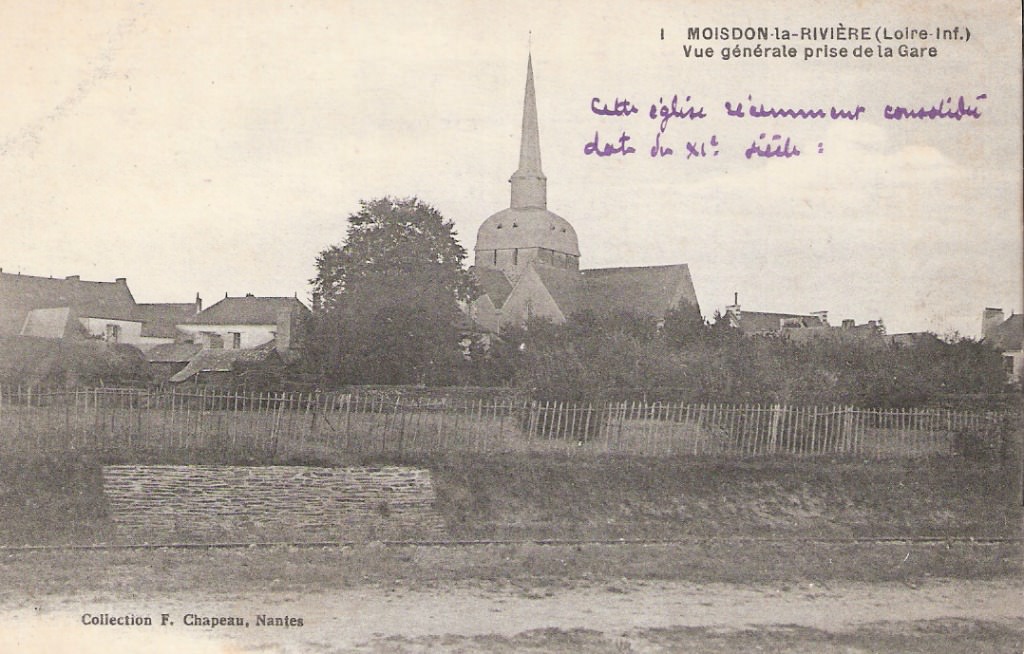 1 MOISDON-la-RIVIÈRE (Loire-Inf.)
Vue générale prise de la Gare
Cette église récemment consolidée
date du XIe siècle :
Collection F. Chapeau, Nantes